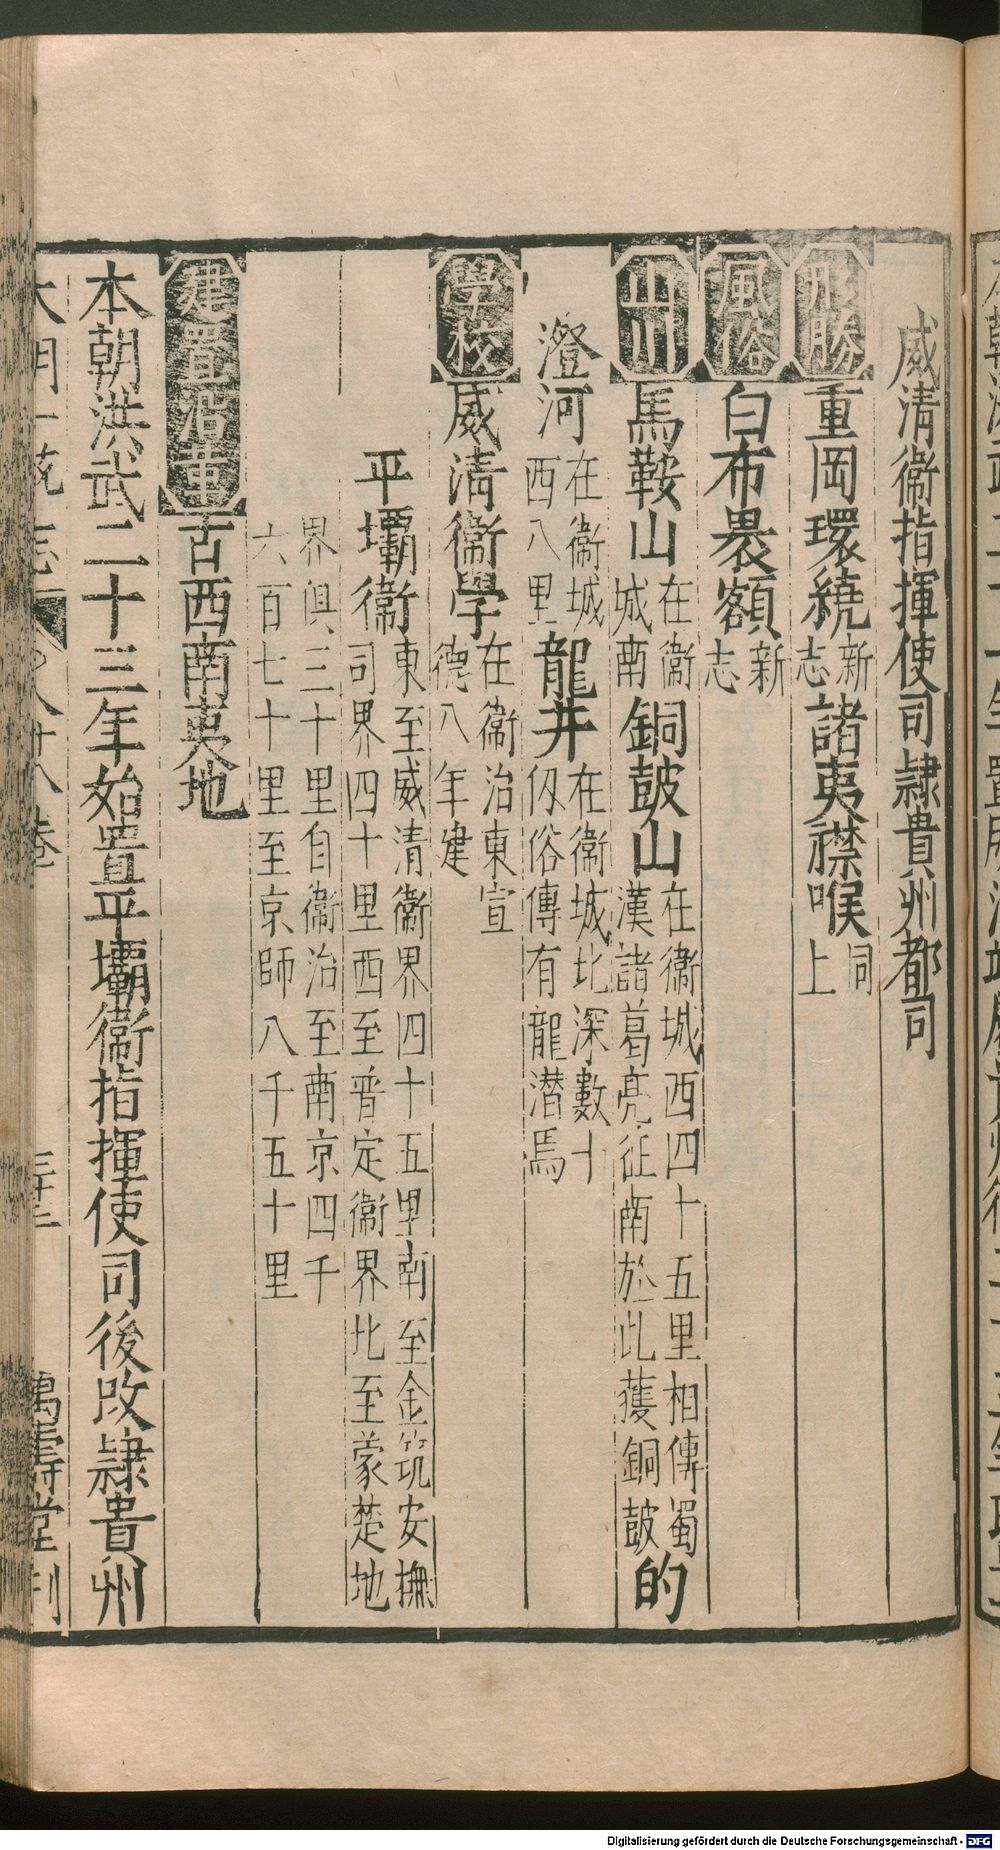 威清衞指揮使司隷貴州都司
形勝重岡環繞新志諸夷襟喉同上
風俗白布褁額新志
山川馬鞍山在衞城南銅皷山在衞城西四十五里相傳蜀漢諸葛亮征南於此獲銅皷的
澄河在衞城西八里龍井在衞城北深數十仭俗傳有龍潜焉
學校威清衞學在衞治東宣德八年建
平壩衞東至威清衞界四十五里南至金筑安撫司界四十里西至普定衞界北至蒙楚地
界俱三十里自衞治至南京四千六百七十里至京師八千五十里
建置沿革古西南夷地
本朝洪武二十三年始置平壩衞指揮使司後改隷貴州
大明一統志 之八十八卷 三十二 萬壽堂刊
Digitalisierung gefördert durch die Deutsche Forschungsgemeinschaft - DFG